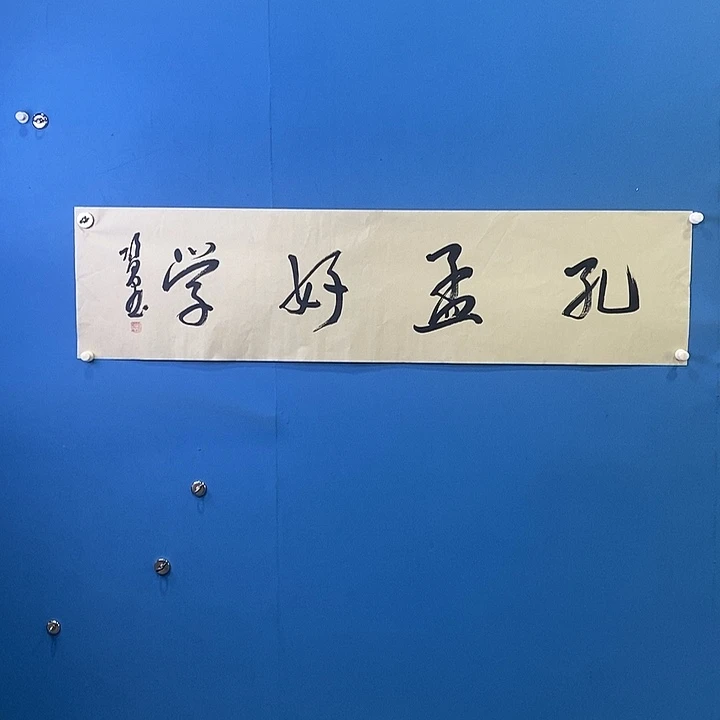 孔孟好学